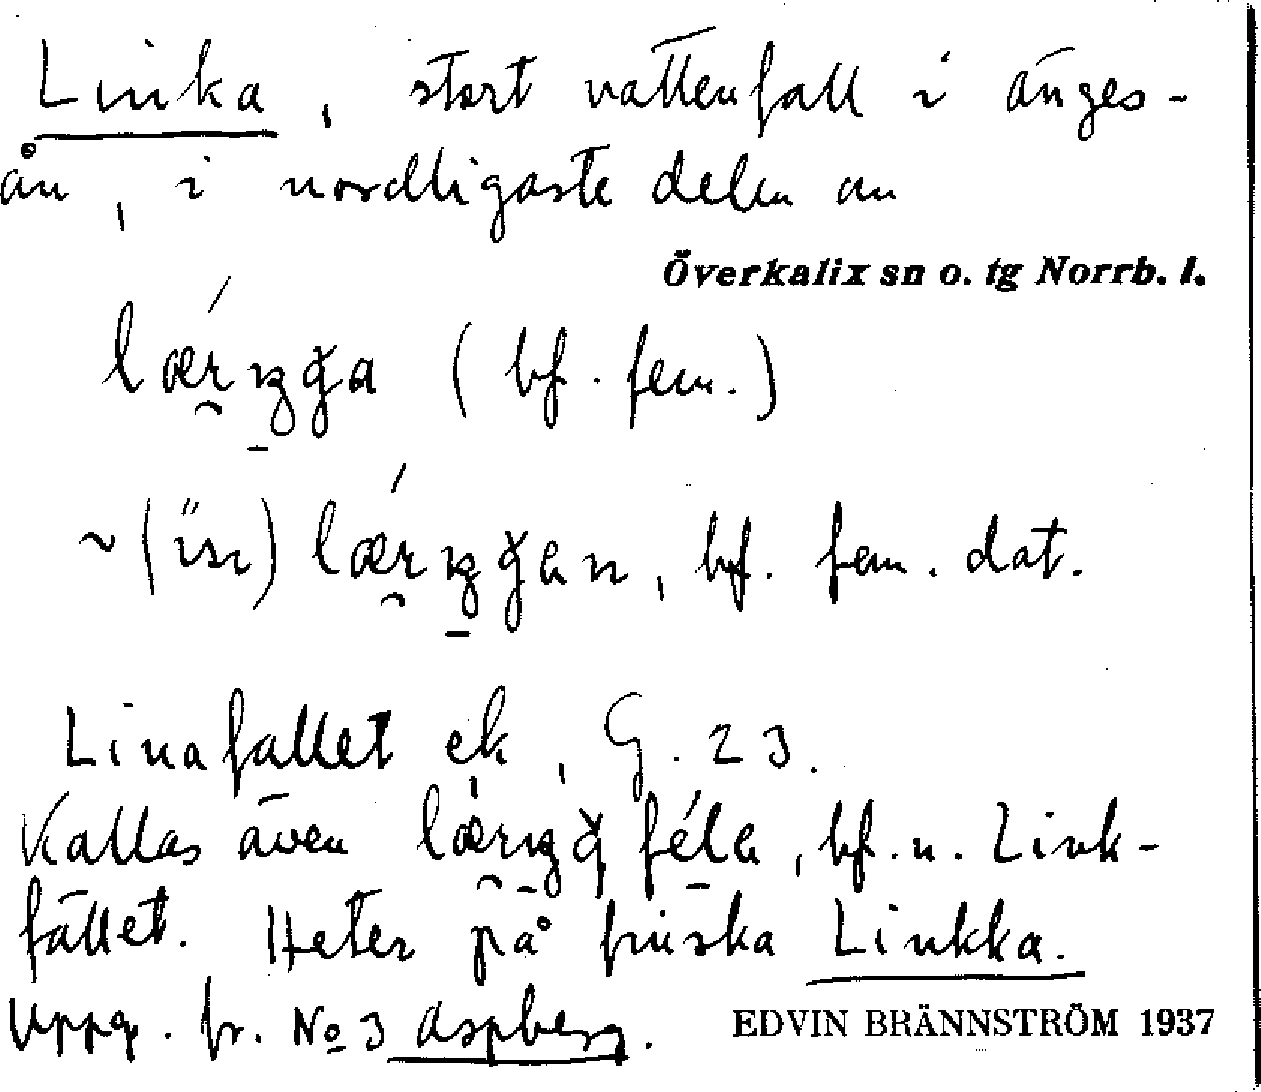 Linka, stort vattenfall i Änges-
ån, i nordligaste delen av
Överkalix sn o. tg Norrb. l.
(bf. fem.)
bf. fem. dat.
Linafallet ek, G. 23.
Kallas även bf. n. Link-
fället. Heter på finska Linkka.
Uppg. fr. No 3 Aspberg.
EDVIN BRÄNNSTRÖM 1937